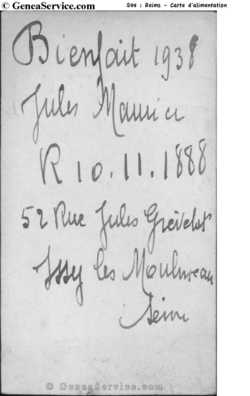 © GeneaService.com D44 : Reims - Carte d'alimentation
Bienfait 1938
Jules Maurice
R 10.11.1888
52 Rue Jules Grévelet
Issy les Moulineaux
Seine
© GeneaService.com